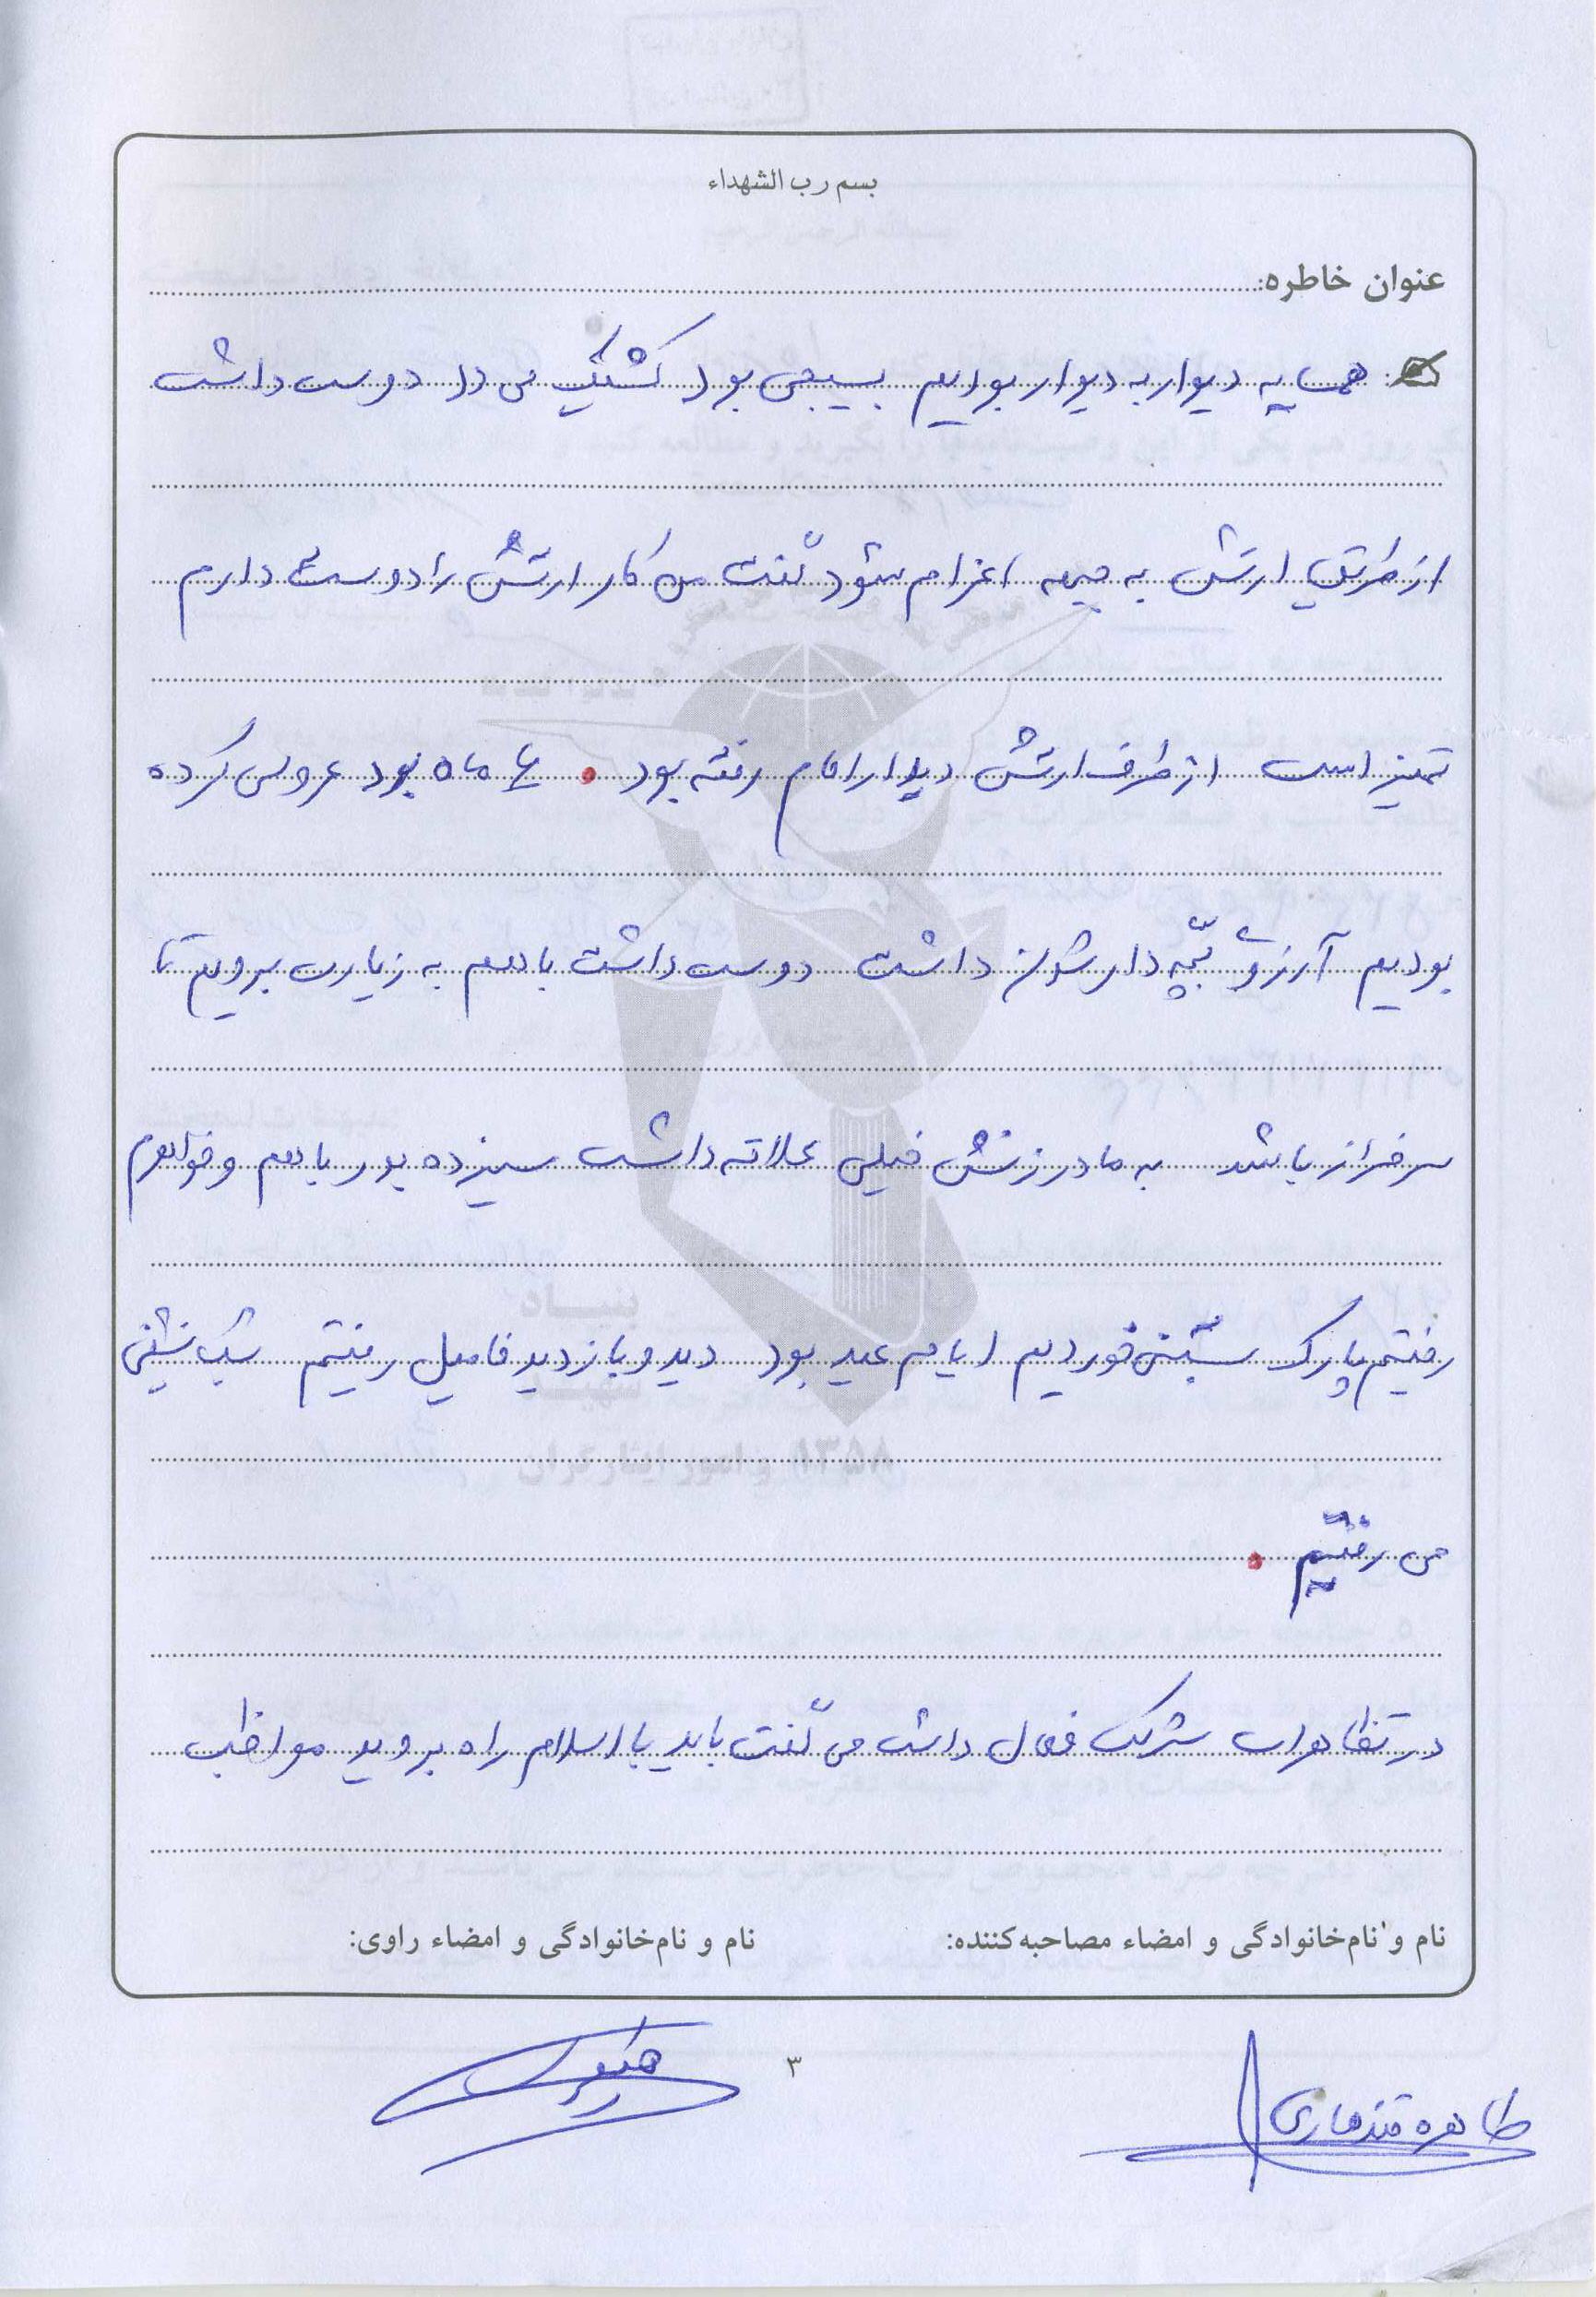 بسم رب الشهداء
عنوان خاطره:
همسایه دیوار به دیوار بودیم بسیجی بود کشیک می داد دوست داشت
از طریق ارتش به جبهه اعزام شود گفت من کار ارتش را دوست دارم
تمیز است از طرف ارتش دیدار امام رفته بود . ۶ ماه بود عروسی کرده
بودیم آرزوی بچه دار شدن داشت دوست داشت با هم به زیارت برویم تا
سرفراز باشد به مادر زنش خیلی علاقه داشت سیزده بدر با هم و خواهرم
رفتیم پارک بستنی خوردیم ایام عید بود دید و بازدید فامیل رفتیم شب نشینی
می رفتیم .
در تظاهرات شرکت فعال داشت می گفت باید با اسلام راه بروید مواظب
نام و نام‌خانوادگی و امضاء مصاحبه‌کننده:
نام و نام‌خانوادگی و امضاء راوی:
۳
طاهره قندهاری
بنیاد
شهید
و امور ایثارگران
۱۳۵۸